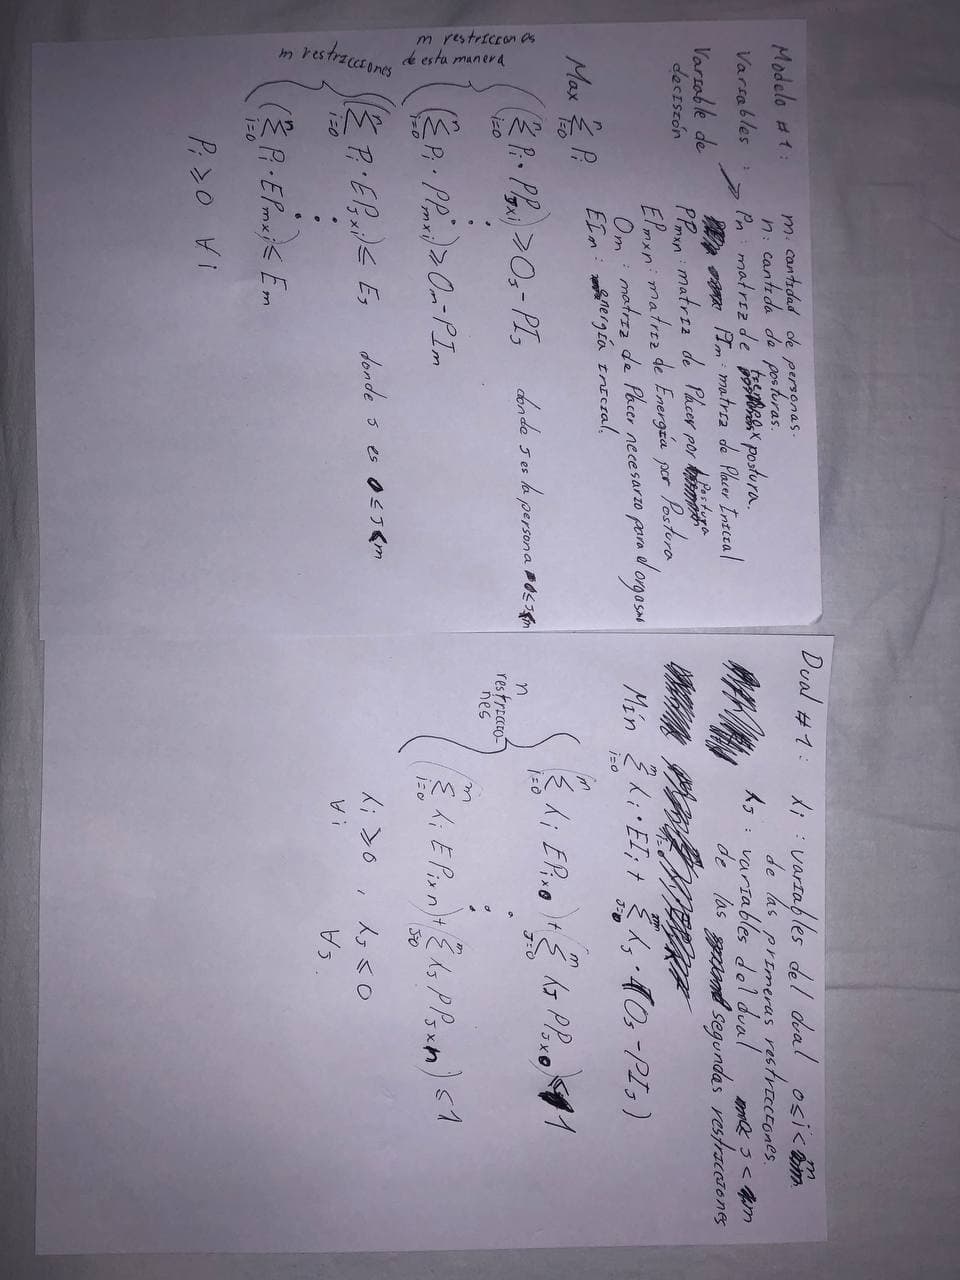 Modelo #1:
m: cantidad de personas.
n: cantida de posturas.
Variables :
Pn: matriz de tiempo x postura.
PIm: matriz de Placer Inicial
Variable de
decisión
PPmxn: matriz de Placer por Postura
EPmxn: matriz de Energía por Postura
Om : matriz de Placer necesario para el orgasmo
EIm: energía inicial.
Max ∑ⁿᵢ₌₀ Pi
m restricciones
de esta manera
(∑ⁿᵢ₌₀ Pi · PPjxi) ≥ Oj - PIj donde j es la persona 0 ≤ j < m
(∑ⁿᵢ₌₀ Pi · PPmxi) ≥ Om - PIm
m restricciones
(∑ⁿᵢ₌₀ Pi · EPjxi) ≤ Ej donde j es 0 ≤ j < m
(∑ⁿᵢ₌₀ Pi · EPmxi) ≤ Em
Pi ≥ 0 ∀ i
Dual #1:
λi : variables del dual 0 ≤ i < m
de las primeras restricciones.
λj : variables del dual ≤ j < m
de las segundas restricciones
Mín ∑ᵐᵢ₌₀ λi · EIi + ∑ᵐⱼ₌₀ λj · (Oj - PIj)
n
restriccio-
nes
(∑ᵐᵢ₌₀ λi EPix0) + (∑ᵐⱼ₌₀ λj PPjx0) ≤ 1
(∑ᵐᵢ₌₀ λi EPixn) + (∑ᵐⱼ₌₀ λj PPjxn) ≤ 1
λi ≥ 0 , λj ≤ 0
∀ i ∀ j.